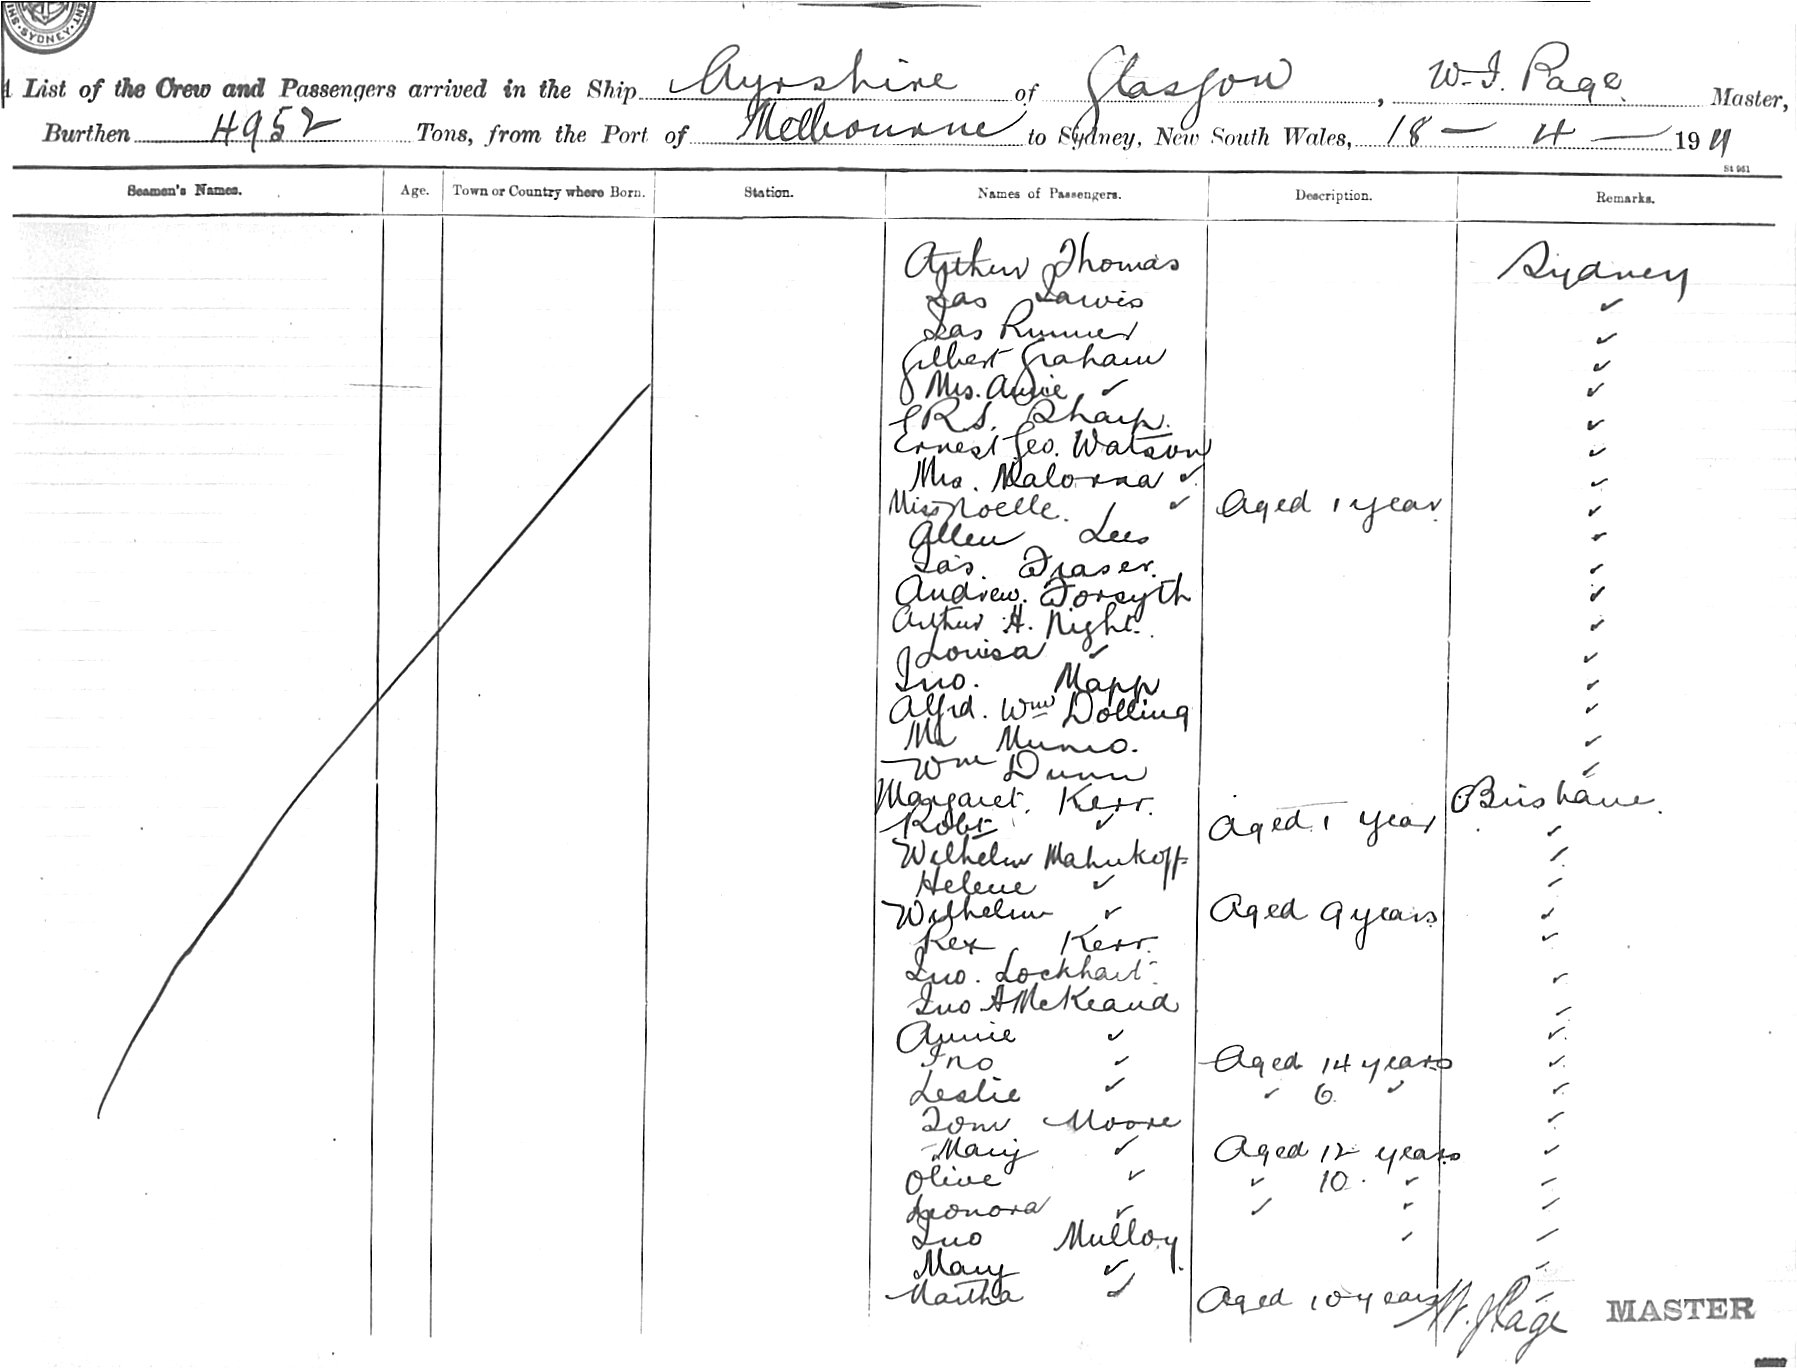 SYDNEY
A List of the Crew and Passengers arrived in the Ship Ayrshire of Glasgow, W. J. Page Master,
Burthen 4952 Tons, from the Port of Melbourne to Sydney, New South Wales, 18 - 4 - 1911
St 961
Seamen's Names. Age. Town or Country where Born. Station. Names of Passengers. Description. Remarks.
Arthur Thomas Sydney
Jas ✓
Jas ✓
Gilbert Graham ✓
Mrs. Annie ✓ ✓
Sharp. ✓
Ernest Geo. Watson ✓
Mrs. ✓ ✓
Miss Noelle. ✓ Aged 1 year ✓
Allen Lees ✓
Jas. Fraser. ✓
Andrew. Forsyth ✓
Arthur H. Night. ✓
Louisa ✓ ✓
Jno. Mapp ✓
Alfrd. Wm Dolling ✓
Mr Munro. ✓
Wm Dunn ✓
Margaret. Kerr. Brisbane.
Robt ✓ Aged 1 year ✓
Wilhelm Mahnkopf ✓
Helene ✓ ✓
Wilhelm ✓ Aged 9 years ✓
Rex Kerr. ✓
Jno. Lockhart. ✓
Jno A McKeand ✓
Annie ✓ ✓
Jno ✓ Aged 14 years ✓
Leslie ✓ ✓ 6 ✓ ✓
Tom Moore ✓
Mary ✓ Aged 12 years ✓
Olive ✓ ✓ 10. ✓ ✓
Leonora ✓ ✓ ✓ ✓
Jno Mulloy. ✓ ✓
Mary ✓ ✓
Martha ✓ Aged 10 years ✓
W. J. Page MASTER